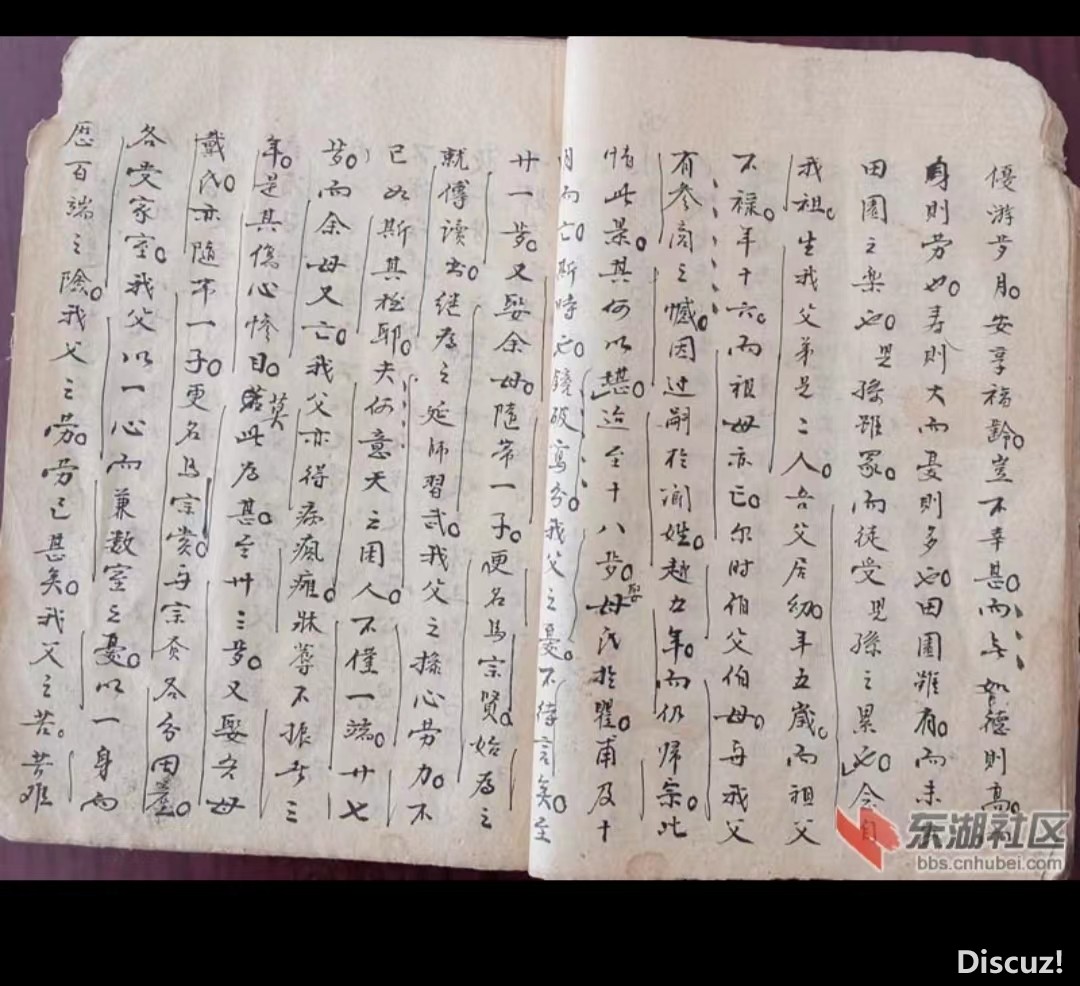 優游歩月。安享福齡。豈不幸甚。而無如德則高。而
身則劳也。寿則大而憂則多也。田園雖有。而未
田園之楽也。児孫雖眾。而徒受児孫之累也。余自
我祖。生我父弟兄二人。吾父居幼。年五歲。而祖父
不禄。年十六。而祖母亦亡。尔时伯父伯母。与我父
有参商之憾。因过嗣於阎姓。越九年。而仍歸宗。此
情此景。其何以堪。迨至十八歩。娶母氏於瞿。甫及十
月而亡。斯時也。鏡破鸞分。我父之憂。不待言矣。至
廿一歩。又娶余母。隨帶一子。更名馬宗賢。始為之
就傅读书。继為之延师習武。我父之操心劳力。不
已如斯其極耶。夫何意天之困人。不僅一端。廿七
歩。而余母又亡。我父亦得病瘋癱。牀蓐不振者三
年。是其傷心慘目。莫若此為甚。至卅三歩。又娶吾母
戴氏。亦隨帶一子。更名馬宗賞。与宗賢各分田產。
各受家室。我父以一心而兼数室之憂。以一身而
歷百端之險。我父之劳。劳已甚矣。我父之苦。苦难
东湖社区
bbs.cnhubei.com
Discuz!